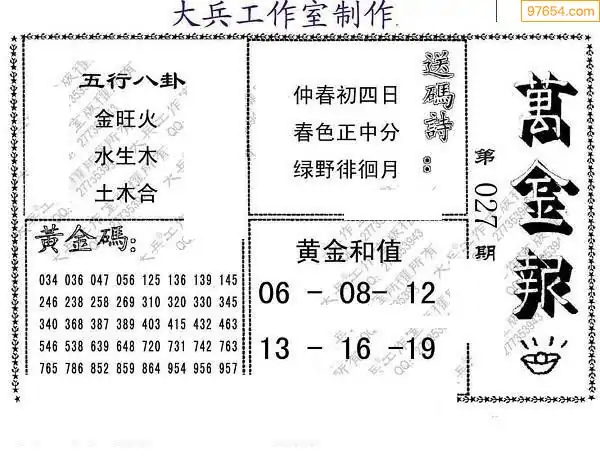 大兵工作室制作
97654.com
五行八卦
金旺火
水生木
土木合
送碼詩：
仲春初四日
春色正中分
绿野徘徊月
萬金報
第027期
黃金碼：
034 036 047 056 125 136 139 145
246 238 258 269 310 320 330 345
340 368 387 389 403 415 432 463
546 538 639 648 720 731 742 763
765 786 852 859 864 954 956 957
黄金和值
06 - 08- 12
13 - 16 -19